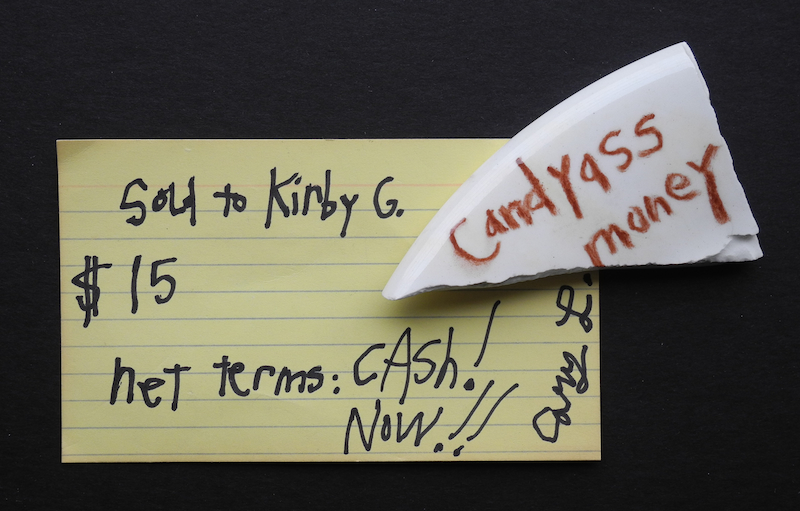 Sold to Kirby G.
$ 15
net terms: CASH!
NOW.!!
Candyass
money